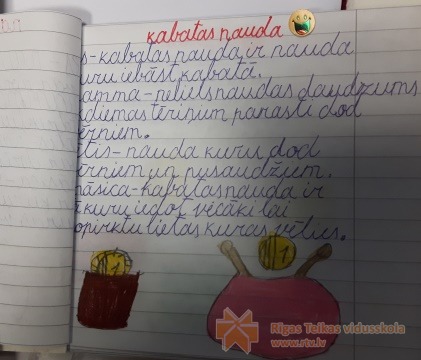 kabatas nauda
s-kabatas nauda ir nauda
uru iebāst kabatā.
amma-neliels naudas daudzums
dienas tēriņiem parasti dod
ērniem.
ētis-nauda kuru dod
ērniem un pusaudžiem.
māsica-kabatas nauda ir
kuru iedod vecāki lai
opirktu lietas kuras vēlies.
1
1
Rīgas Teikas vidusskola
www.rtv.lv